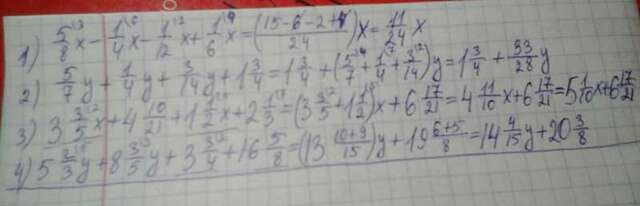 1) 5/8 x - 1/4 x - 1/12 x + 1/6 x = (15-6-2+4)/24 x = 11/24 x
2) 5/7 y + 1/4 y + 3/14 y + 1 3/4 = 1 3/4 + (5/7 + 1/4 + 3/14) y = 1 3/4 + 33/28 y
3) 3 3/5 x + 4 10/21 + 1 1/2 x + 2 1/3 = (3 3/5 + 1 1/2) x + 6 17/21 = 4 11/10 x + 6 17/21 = 5 1/10 x + 6 17/21
4) 5 2/3 y + 8 3/5 y + 3 3/4 + 16 5/8 = (13 10+9/15) y + 19 6+5/8 = 14 4/15 y + 20 3/8